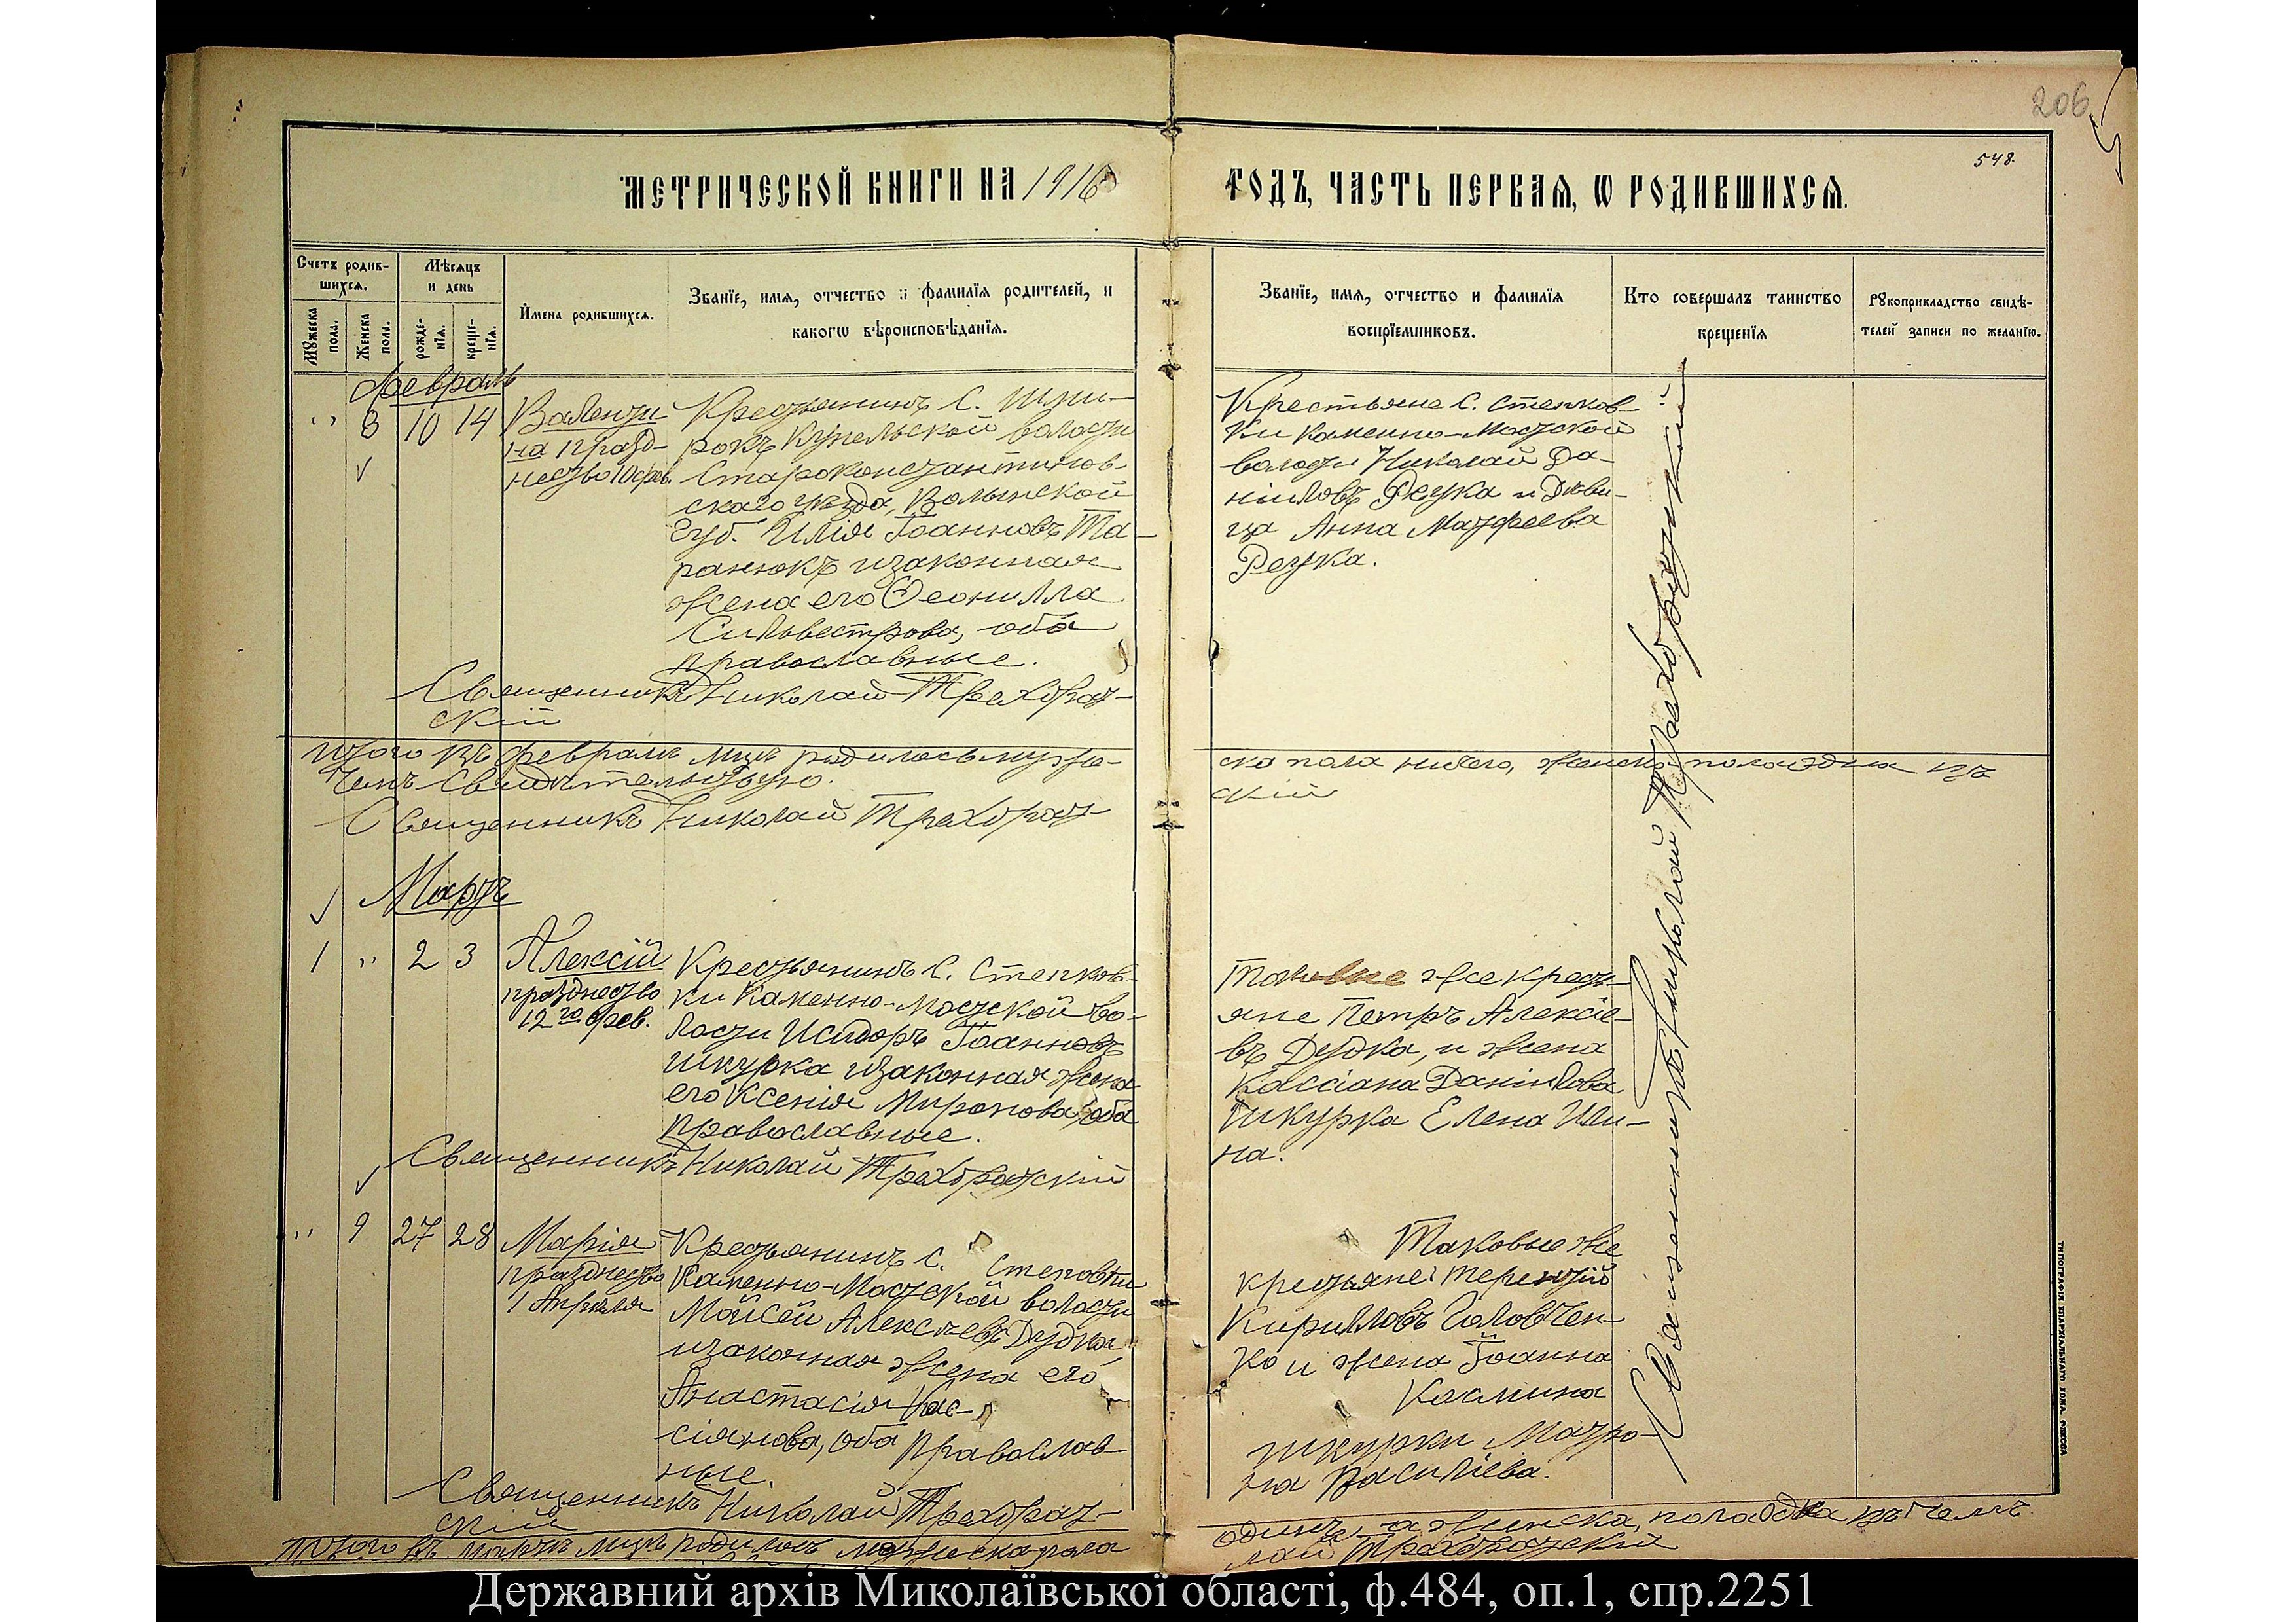 206
548.
МЕТРИЧЕСКОЙ КНИГИ НА 1916 ГОДЪ, ЧАСТЬ ПЕРВАЯ, Ѡ РОДИВШИХСЯ.
Счетъ родив-
шихся.
Мужеска
пола.
Женска
пола.
Мѣсяцъ
и день
рожде-
нїя.
креще-
нїя.
Имена родившихся.
Званїе, имя, отчество и фамилїя родителей, и
какогѡ вѣроисповѣданїя.
Званїе, имя, отчество и фамилїя
воспрїемниковъ.
Кто совершалъ таинство
крещенїя
Рукоприкладство свидѣ-
телей записи по желанїю.
Февраль
" 8 10 14
Валенти-
на празд-
нество 10 фев.
Крестьянинъ с. Шпи-
рокъ Купельской волости
Староконстантинов-
скаго уѣзда, Волынской
губ. Илія Іоанновъ Та-
ранюкъ и законная
жена его Ѳеонилла
Сильвестрова, оба
православные.
Священникъ Николай Трахборат-
скій
Крестьяне с. Степков-
ки Каменно-Мостской
волости Николай Да-
ніиловъ Редька и дѣви-
ца Анна Матфеева
Редька.
Итого въ февралѣ мцѣ родилось муже-
ска пола ничего, женска пола одна въ
чемъ свидѣтельствую.
Священникъ Николай Трахборат-
скій
Мартъ
1 " 2 3
Алексій
празднество
12го фев.
Крестьянинъ с. Степков-
ки Каменно-Мостской во-
лости Исидоръ Іоанновъ
Шкурка и законная жена
его Ксенія Миронова, оба
православные.
Священникъ Николай Трахборатскій
Таковые же кресть-
яне Петръ Алексіе-
въ Дудка, и жена
Кассіана Даніилова
Шкурка Елена Или-
на.
" 9 27 28
Марія
празднество
1 Апрѣля
Крестьянинъ с. Степовки
Каменно-Мостской волости
Мойсей Алексѣевъ Дудка
и законная жена его
Анастасія Кас-
сіанова, оба православ-
ные.
Священникъ Николай Трахборат-
скій
Таковые же
крестьяне: Терентій
Кирилловъ Головчен-
ко и жена Іоанна
Космина
Шкурки Матро-
на Василіева.
Священникъ Николай Трахборатский
Итого въ мартѣ мцѣ родилось мужеска пола
одинъ, а женска пола одна въ чемъ
лай Трахборатскій
ТИПОГРАФІЯ ЕПАРХІАЛЬНАГО ДОМА, ОДЕССА
Державний архів Миколаївської області, ф.484, оп.1, спр.2251